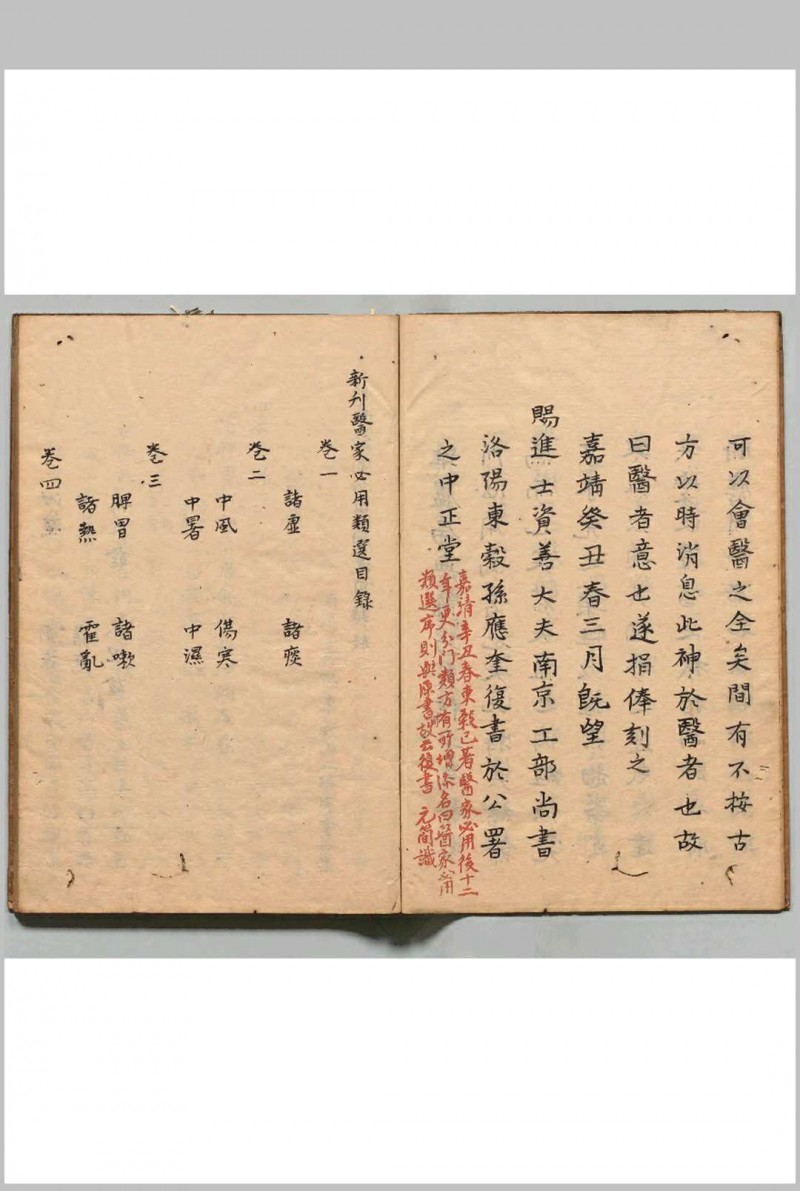 可以會醫之全矣間有不按古
方以時消息此神於醫者也故
曰醫者意也遂捐俸刻之
嘉靖癸丑春三月既望
賜進士資善大夫南京工部尚書
洛陽東穀孫應奎復書於公署
之中正堂
嘉靖辛丑春東穀已著醫家必用後十二
年更分門類方有所增添名曰醫家必用
類選序則與原書故云後書 元簡識
新刋醫家必用類選目錄
卷一
諸虛 諸痰
卷二
中風 傷寒
中暑 中濕
卷三
脾胃 諸嗽
諸熱 霍亂
卷四